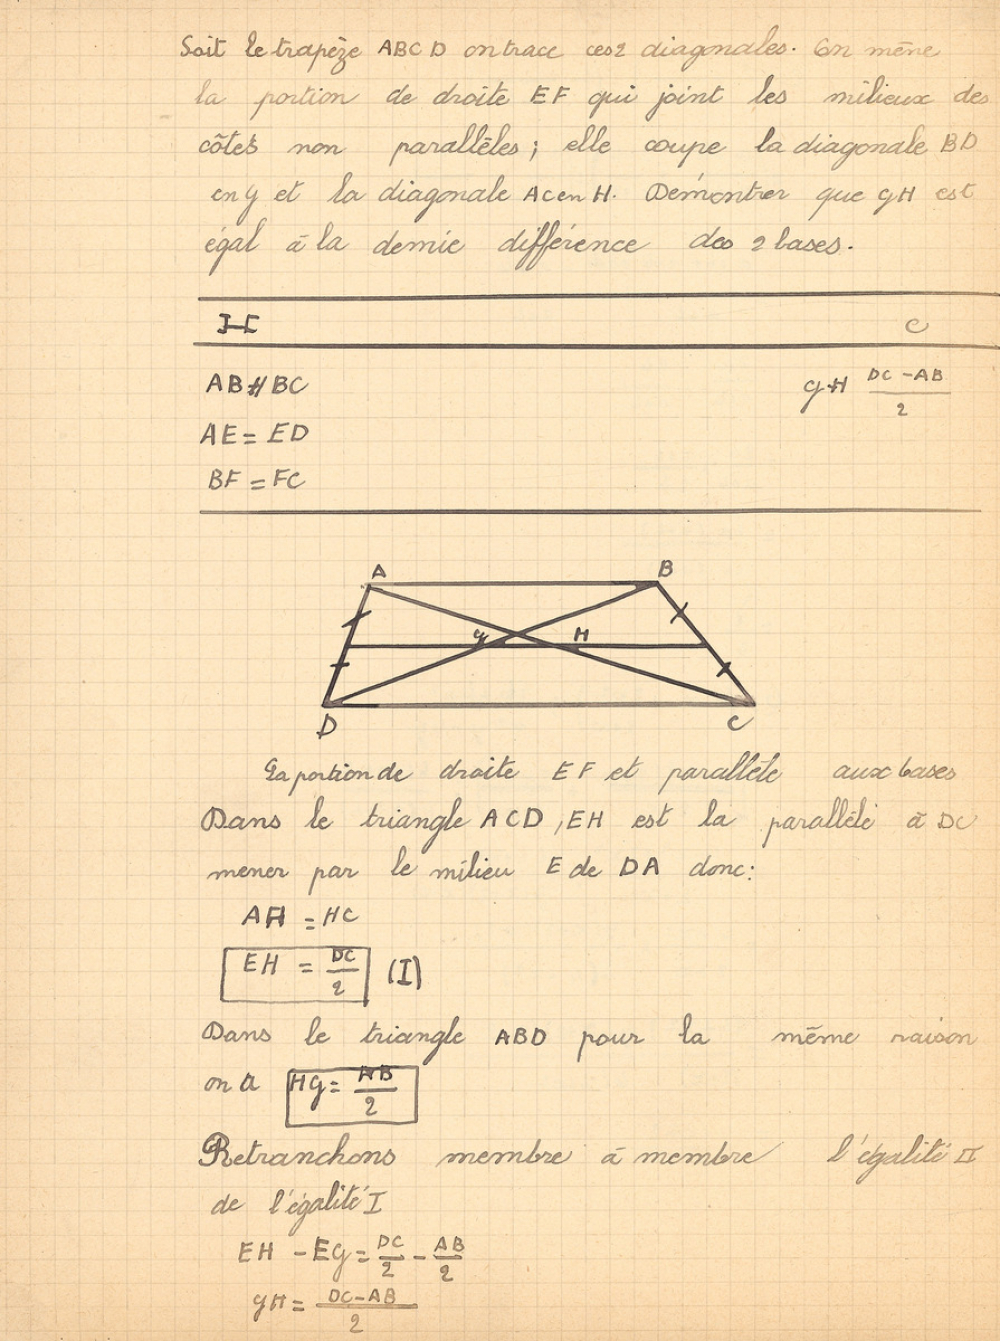 Soit le trapèze ABCD on trace ces 2 diagonales. On mène
la portion de droite EF qui joint les milieux des
côtés non parallèles; elle coupe la diagonale BD
en G et la diagonale AC en H. Démontrer que GH est
égal à la demie différence des 2 bases.
H C
AB // BC GH DC - AB / 2
AE = ED
BF = FC
A B
G H
D C
La portion de droite EF et parallèle aux bases
Dans le triangle ACD, EH est la parallèlé à DC
mener par le milieu E de DA donc:
AH = HC
EH = DC / 2 (I)
Dans le triangle ABD pour la même raison
on a HG = AB / 2
Retranchons membre à membre l'égalité II
de l'égalité I
EH - EG = DC / 2 - AB / 2
GH = DC - AB / 2